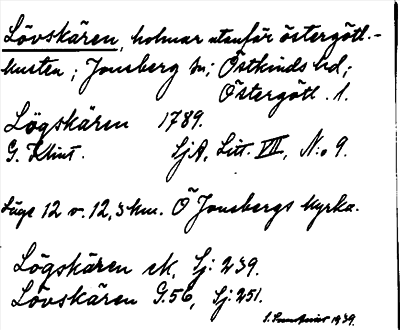 Lövskären, holmar utanför östergötl.-
kusten; Jonsberg sn; Östkinds hd;
Östergötl. 1.
Lögskären 1789.
G. Klint. SjA, Litt. VII, N:o 9.
Läge 12 v. 12,3 km. O Jonsbergs kyrka.
Lögskären ek, Sj: 239.
Lövskären G.56, Sj: 251.
1939.